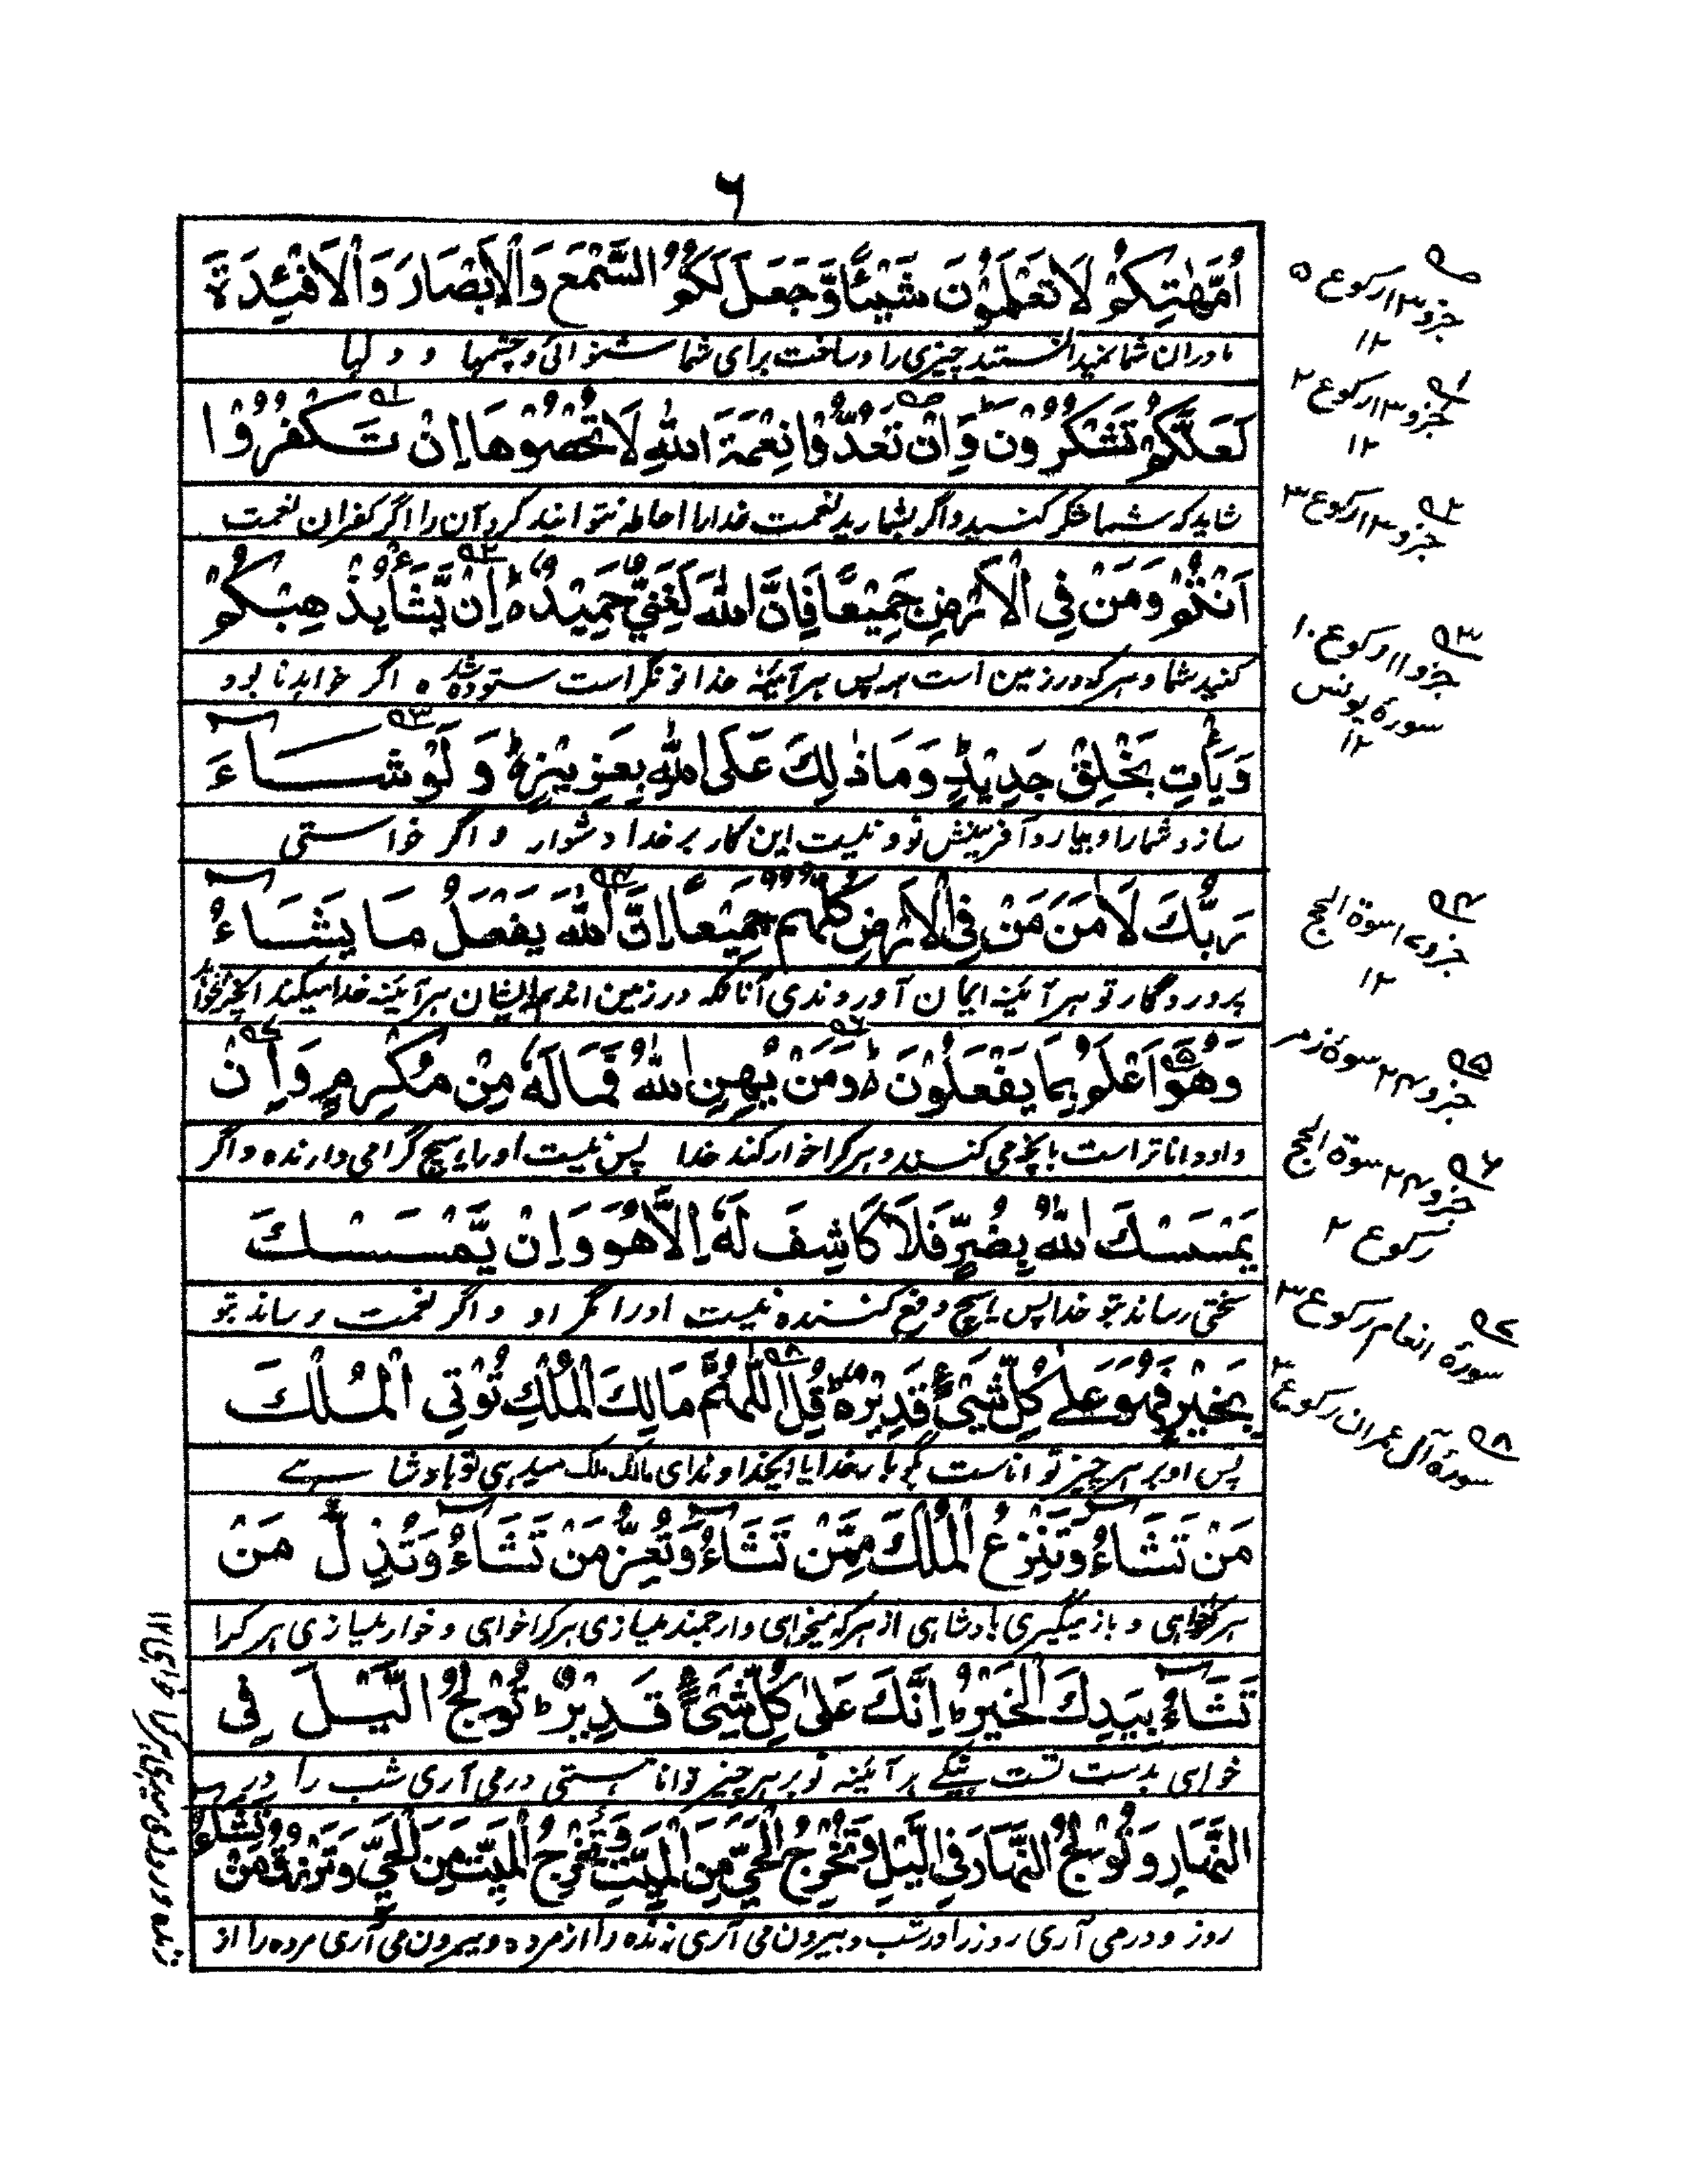 ۶
اُمَّهٰتِكُمْ لَا تَعْلَمُوْنَ شَيْئًا وَّجَعَلَ لَكُمُ السَّمْعَ وَالْاَبْصَارَ وَالْاَفْئِدَةَ
مادران شما نمیدانستید چیزی را و ساخت برای شما شنوائی و چشمها و دلها
لَعَلَّكُمْ تَشْكُرُوْنَ وَاِنْ تَعُدُّوْا نِعْمَةَ اللهِ لَا تُحْصُوْهَا اِنْ تَكْفُرُوْا
شاید که شما شکر کنید و اگر بشمارید نعمت خدا را احاطه نتوانید کرد آن را اگر کفران نعمت
اَنْتُمْ وَمَنْ فِي الْاَرْضِ جَمِيْعًا فَاِنَّ اللهَ لَغَنِيٌّ حَمِيْدٌ اِنْ يَّشَاْ يُذْهِبْكُمْ
کنید شما و هر که در زمین است همه پس هر آئینه خدا تونگر است ستوده شده اگر خواهد نابود
وَيَاْتِ بِخَلْقٍ جَدِيْدٍ وَمَا ذٰلِكَ عَلَى اللهِ بِعَزِيْزٍ وَلَوْ شَاءَ
سازد شما را و بیارد آفرینش نو و نیست این کار بر خدا دشوار و اگر خواستی
رَبُّكَ لَاٰمَنَ مَنْ فِي الْاَرْضِ كُلُّهُمْ جَمِيْعًا اِنَّ اللهَ يَفْعَلُ مَا يَشَاءُ
پروردگار تو هر آئینه ایمان آوردندی آنانکه در زمین اند همه ایشان هر آئینه خدا میکند آنچه میخواهد
وَهُوَ اَعْلَمُ بِمَا يَفْعَلُوْنَ وَمَنْ يُهِنِ اللهُ فَمَا لَهٗ مِنْ مُّكْرِمٍ وَاِنْ
و او داناتر است بآنچه می کنند و هر کرا خوار کند خدا پس نیست او را هیچ گرامی دارنده و اگر
يَمْسَسْكَ اللهُ بِضُرٍّ فَلَا كَاشِفَ لَهٗ اِلَّا هُوَ وَاِنْ يَّمْسَسْكَ
سختی رساند بتو خدا پس هیچ دفع کننده نیست او را مگر او و اگر نعمت رساند بتو
بِخَيْرٍ فَهُوَ عَلٰى كُلِّ شَيْءٍ قَدِيْرٌ قُلِ اللّٰهُمَّ مَالِكَ الْمُلْكِ تُؤْتِي الْمُلْكَ
پس او بر هر چیز تواناست بگو بار خدایا ای خداوندی مالک ملک میدهی تو پادشاهی
مَنْ تَشَاءُ وَتَنْزِعُ الْمُلْكَ مِمَّنْ تَشَاءُ وَتُعِزُّ مَنْ تَشَاءُ وَتُذِلُّ مَنْ
هر کرا خواهی و باز میگیری پادشاهی از هر که میخواهی و ارجمند میسازی هر کرا خواهی و خوار میسازی هر کرا
تَشَاءُ بِيَدِكَ الْخَيْرُ اِنَّكَ عَلٰى كُلِّ شَيْءٍ قَدِيْرٌ تُوْلِجُ الَّيْلَ فِي
خواهی بدست تست نیکی هر آئینه تو بر هر چیز توانا هستی در می آری شب را در
النَّهَارِ وَتُوْلِجُ النَّهَارَ فِي الَّيْلِ وَتُخْرِجُ الْحَيَّ مِنَ الْمَيِّتِ وَتُخْرِجُ الْمَيِّتَ مِنَ الْحَيِّ وَتَرْزُقُ مَنْ تَشَاءُ
روز و در می آری روز را در شب و بیرون می آری زنده را از مرده و بیرون می آری مرده را از
زنده و روزی میدهی هر کرا خواهی ۱۲
۹۰
جزو ۱۳ رکوع ۵
۱۲
۹۱
جزو ۱۳ رکوع ۲
۱۲
۹۲
جزو ۱۳ رکوع ۳
۹۳
جزو ۱۱ رکوع ۱۰
سورۀ یونس
۱۲
۹۴
جزو ۱۷ سورة الحج
۱۲
۹۵
جزو ۲۴ سورۀ زمر
۹۶
جزو ۲۴ سورة الحج
رکوع ۲
۹۷
سورۀ انعام رکوع ۳
۹۸
سورۀ آل عمران رکوع ۳